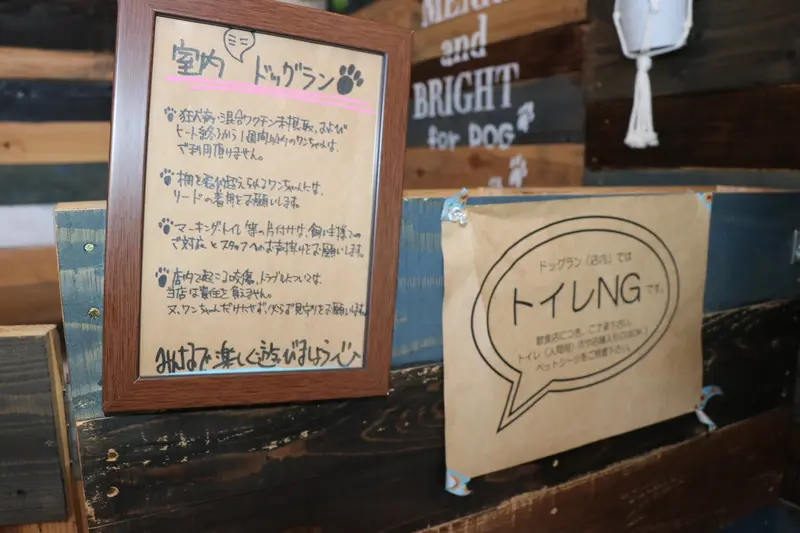 室内 ドッグラン
狂犬病・混合ワクチン未摂取、および
ヒート終了から1週間以内のワンちゃんは、
ご利用頂けません。
柵を飛び越えられるワンちゃんには、
リードの着用をお願いします。
マーキング・トイレ等の片付けは、飼い主様での
ご対応とスタッフへのお声掛けをお願いします。
店内で起こる咬傷、トラブルについては、
当店は責任を負えません。
又、ワンちゃんだけにせず、必らず見守りをお願いします
みんなで楽しく遊びましょう♪
MERRY
and
BRIGHT
for DOG
ドッグラン（店内）では
トイレNGです。
飲食店につき、ご了承下さい。
トイレ（人間用）
ペットシーツをご用意下さい。